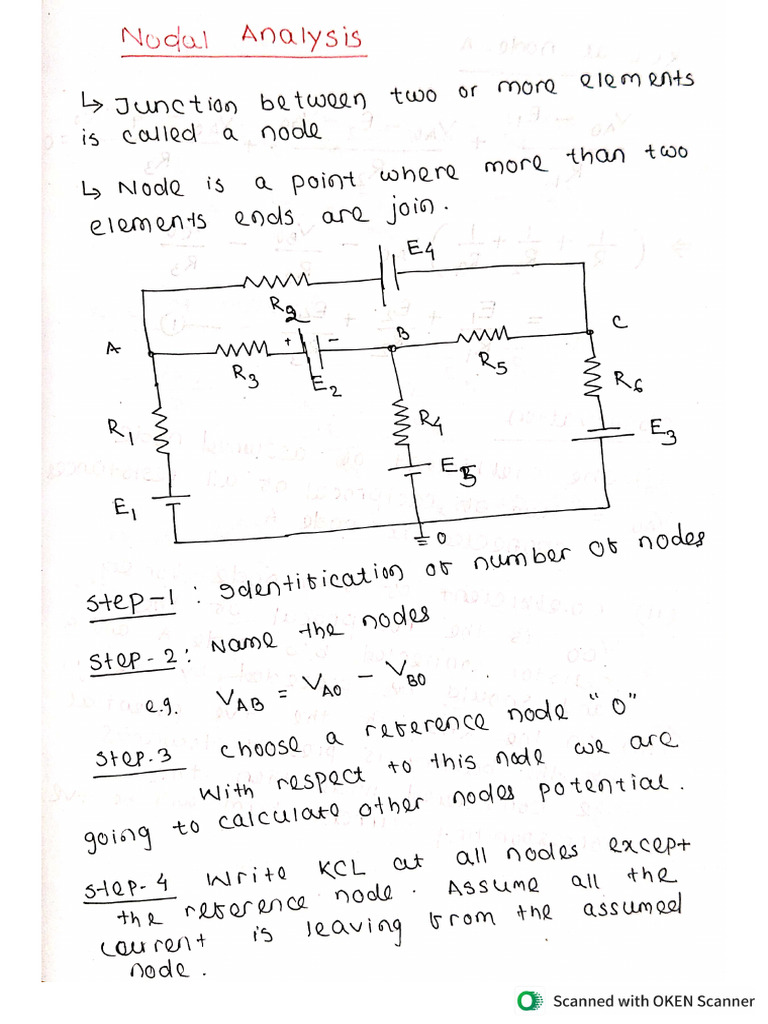 Nodal Analysis
↳ Junction between two or more elements
is called a node
↳ Node is a point where more than two
elements ends are join.
E4
R2
A
R3
+
-
E2
B
R5
C
R1
R4
R6
E3
E1
E5
0
Step-1: Identification of number of nodes
Step-2: Name the nodes
e.g. VAB = VAO - VBO
Step.3 choose a reference node "0"
With respect to this node we are
going to calculate other nodes potential.
Step-4 Write KCL at all nodes except
the reference node. Assume all the
current is leaving from the assumed
node.
Scanned with OKEN Scanner